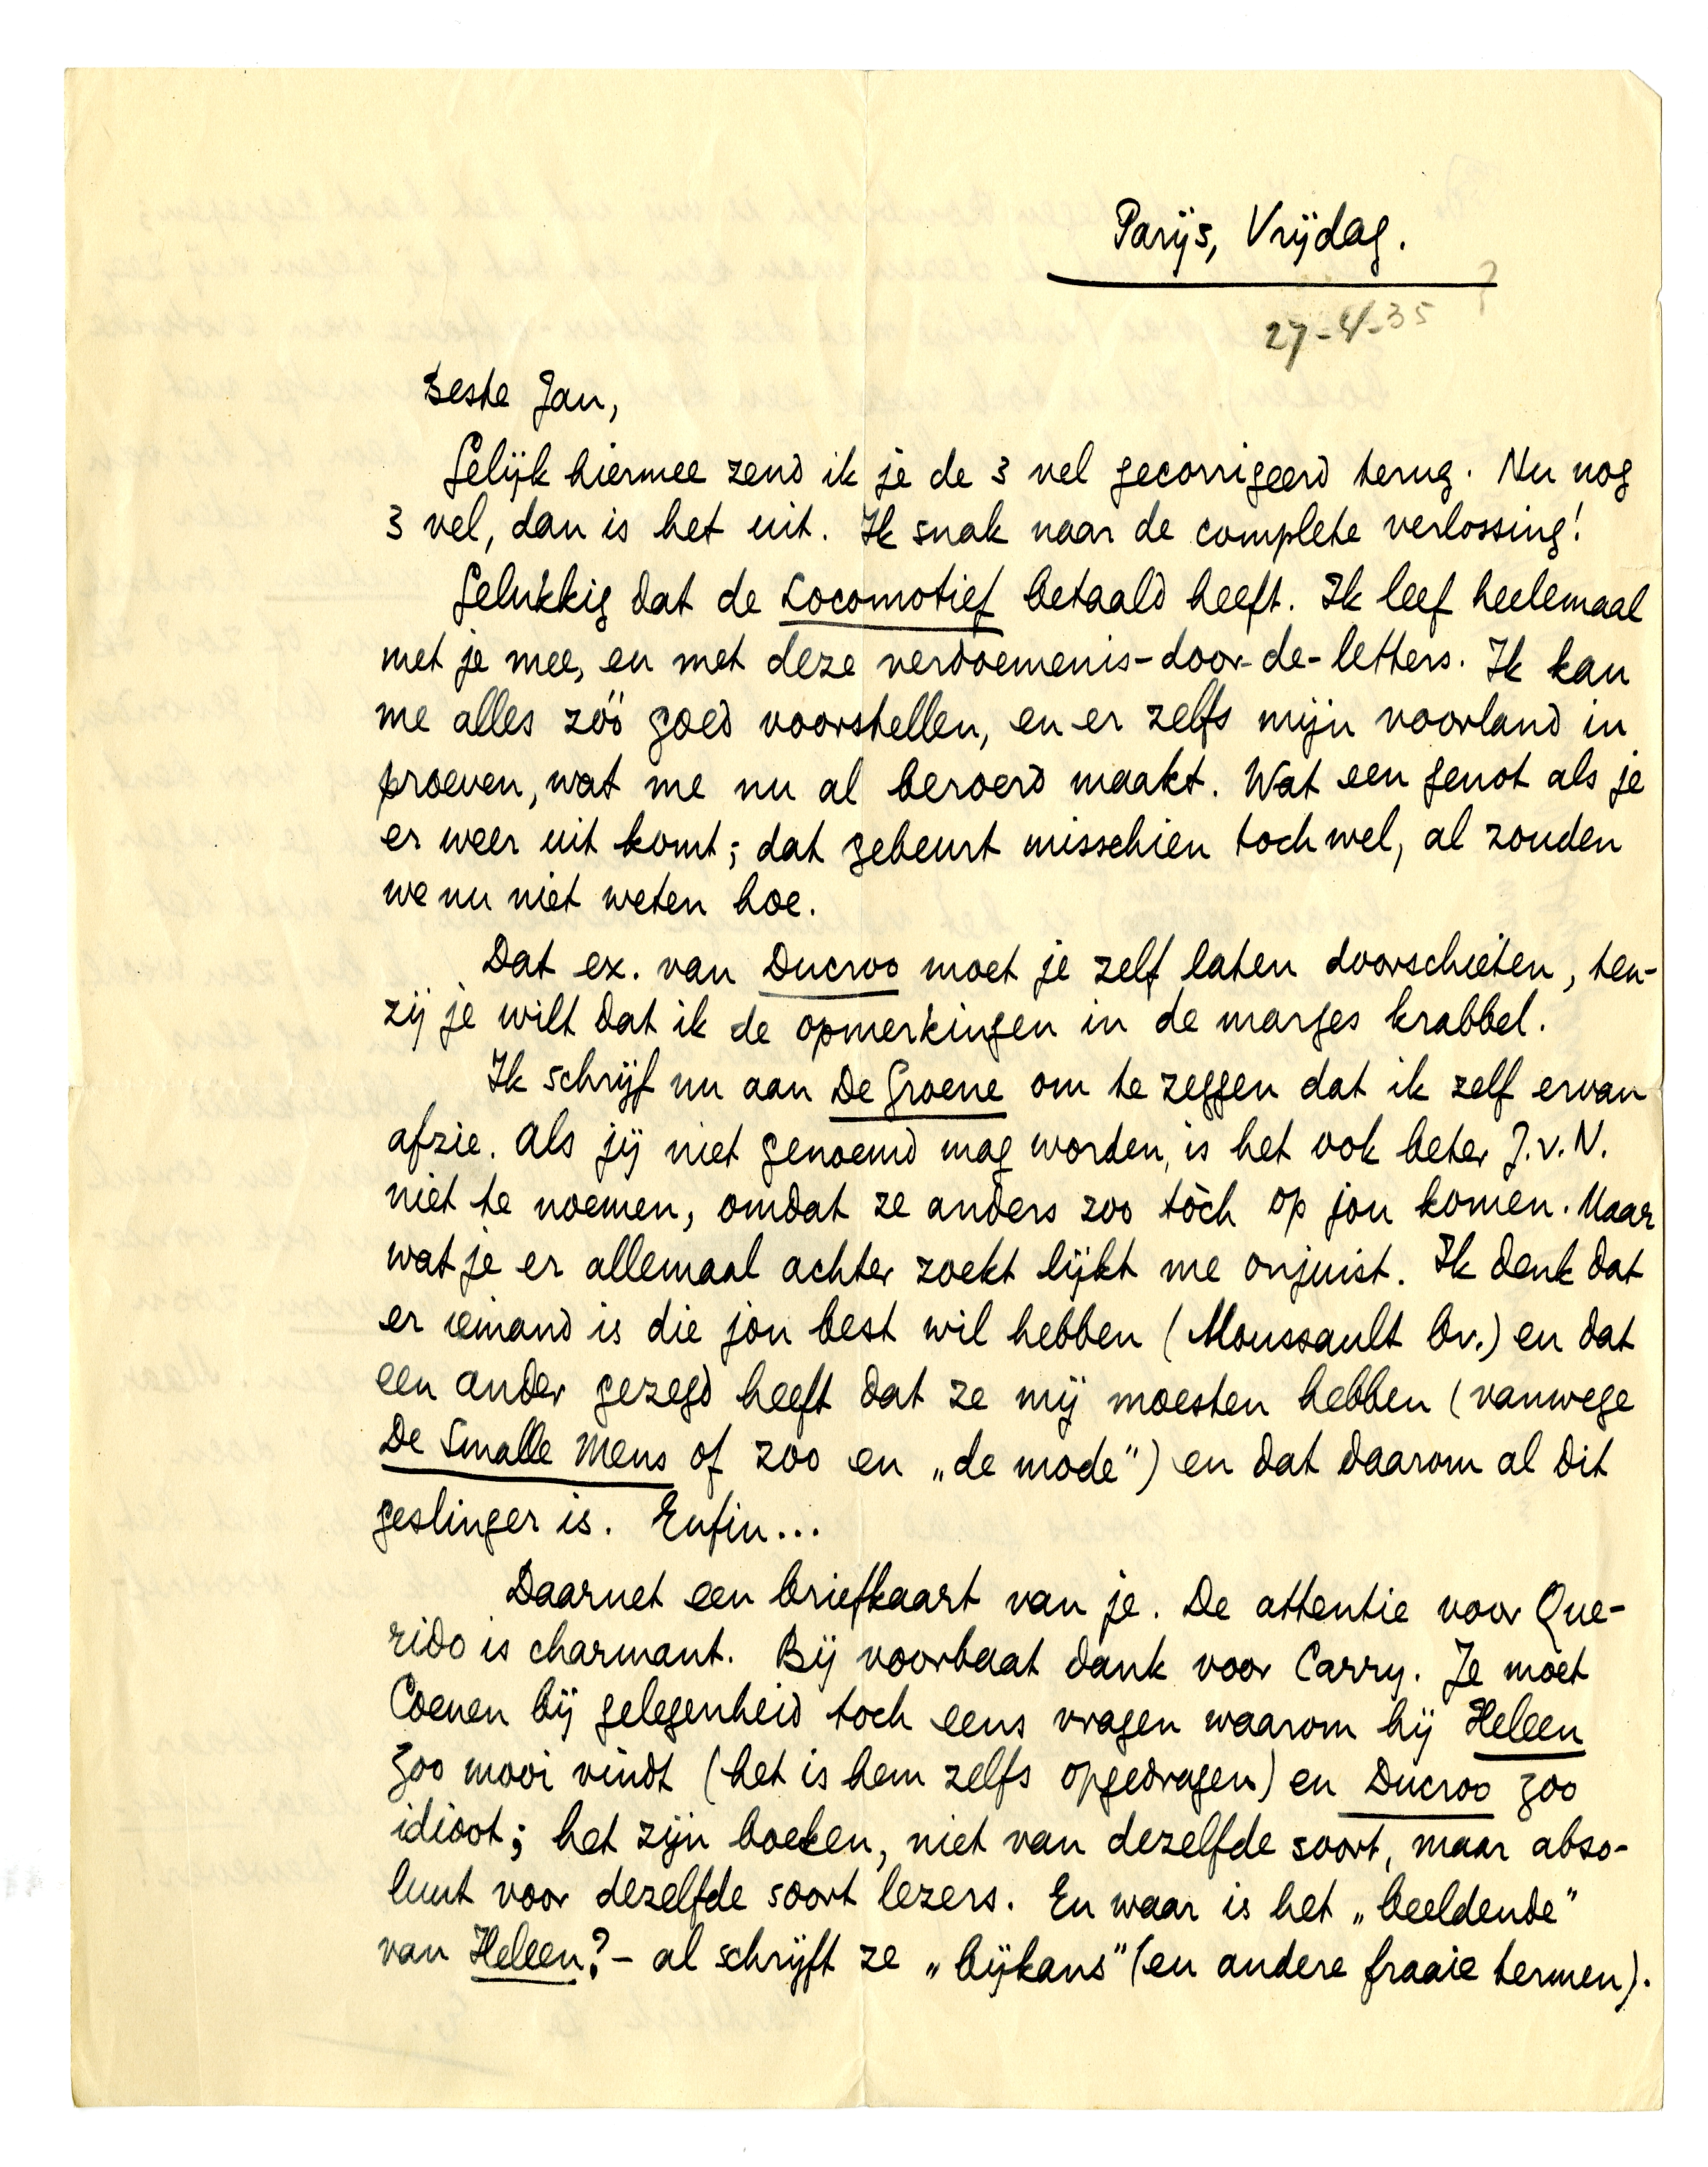 Parijs, Vrijdag.
27-4-35 ?
Beste Jan,
Gelijk hiermee zend ik je de 3 vel gecorrigeerd terug. Nu nog
3 vel, dan is het uit. Ik snak naar de complete verlossing!
Gelukkig dat de Locomotief betaald heeft. Ik leef heelemaal
met je mee, en met deze verdoemenis-door-de-letters. Ik kan
me alles zóó goed voorstellen, en er zelfs mijn voorland in
proeven, wat me nu al beroerd maakt. Wat een genot als je
er weer uit komt; dat gebeurt misschien toch wel, al zouden
we nu niet weten hoe.
Dat ex. van Ducroo moet je zelf laten doorschieten, ten-
zij je wilt dat ik de opmerkingen in de marges krabbel.
Ik schrijf nu aan De Groene om te zeggen dat ik zelf ervan
afzie. Als jij niet genoemd mag worden, is het ook beter J.v.N.
niet te noemen, omdat ze anders zoo tòch op jou komen. Maar
wat je er allemaal achter zoekt lijkt me onjuist. Ik denk dat
er iemand is die jou best wil hebben (Moussault bv.) en dat
een ander gezegd heeft dat ze mij moesten hebben (vanwege
De Smalle Mens of zoo en „de mode”) en dat daarom al dit
geslinger is. Enfin...
Daarnet een briefkaart van je. De attentie voor Que-
rido is charmant. Bij voorbaat dank voor Carry. Je moet
Coenen bij gelegenheid toch eens vragen waarom hij Heleen
zoo mooi vindt (het is hem zelfs opgedragen) en Ducroo zoo
idioot; het zijn boeken, niet van dezelfde soort, maar abso-
luut voor dezelfde soort lezers. En waar is het „beeldende”
van Heleen? – al schrijft ze „bijkans” (en andere fraaie termen).